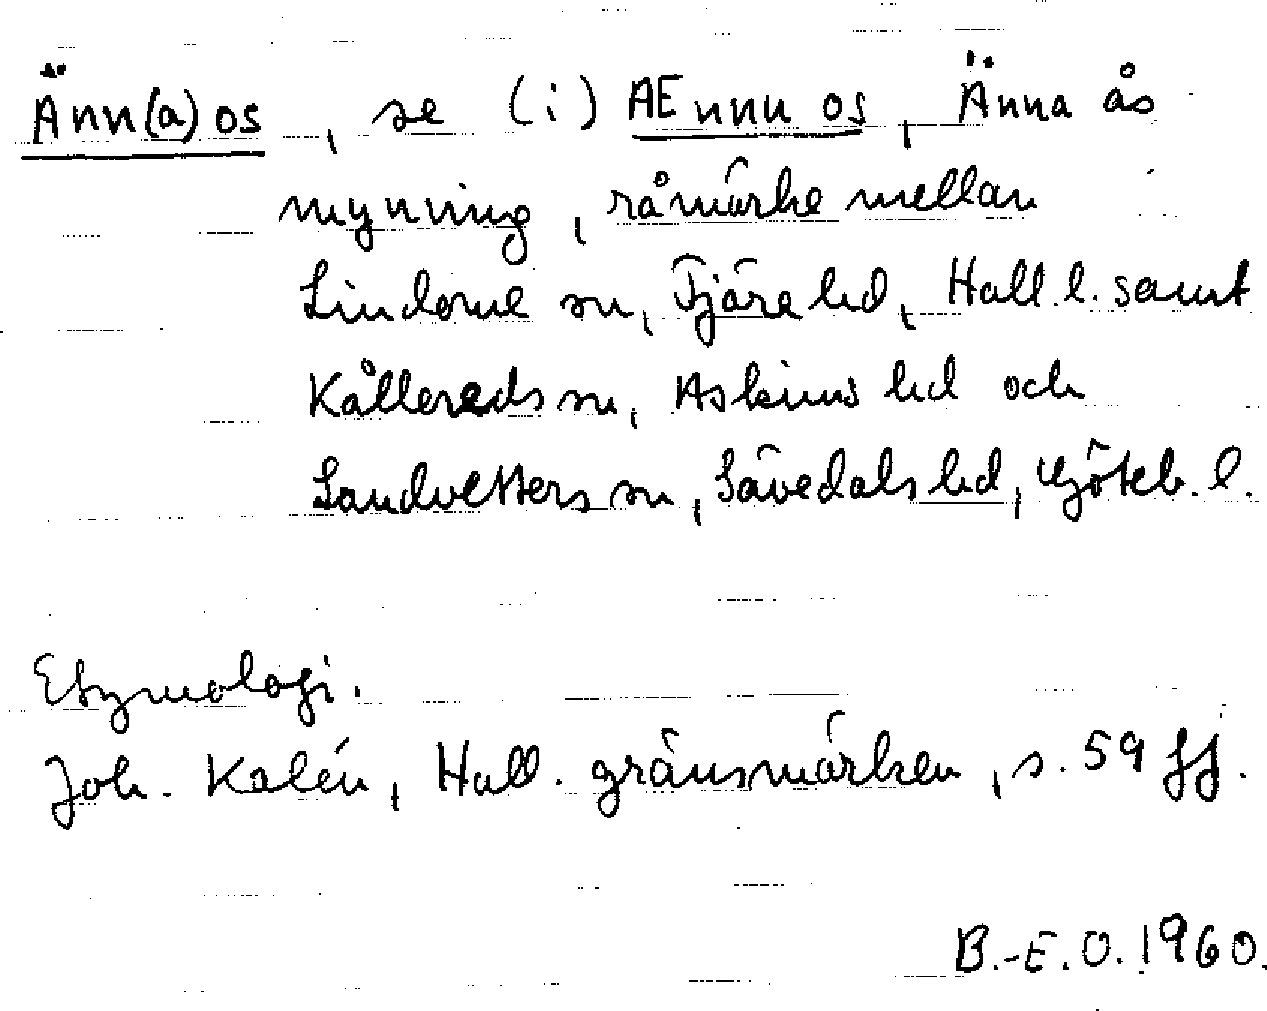 Änn(a)os, se (i) AEnnu os, Änna ås
mynning, råmärke mellan
Lindome sn, Fjäre hd, Hall. l. samt
Kållereds sn, Askims hd och
Landvetters sn, Sävedals hd, Göteb. l.
Etymologi.
Joh. Kalén, Hall. gränsmärken, s. 59 ff.
B.-E. O. 1960.